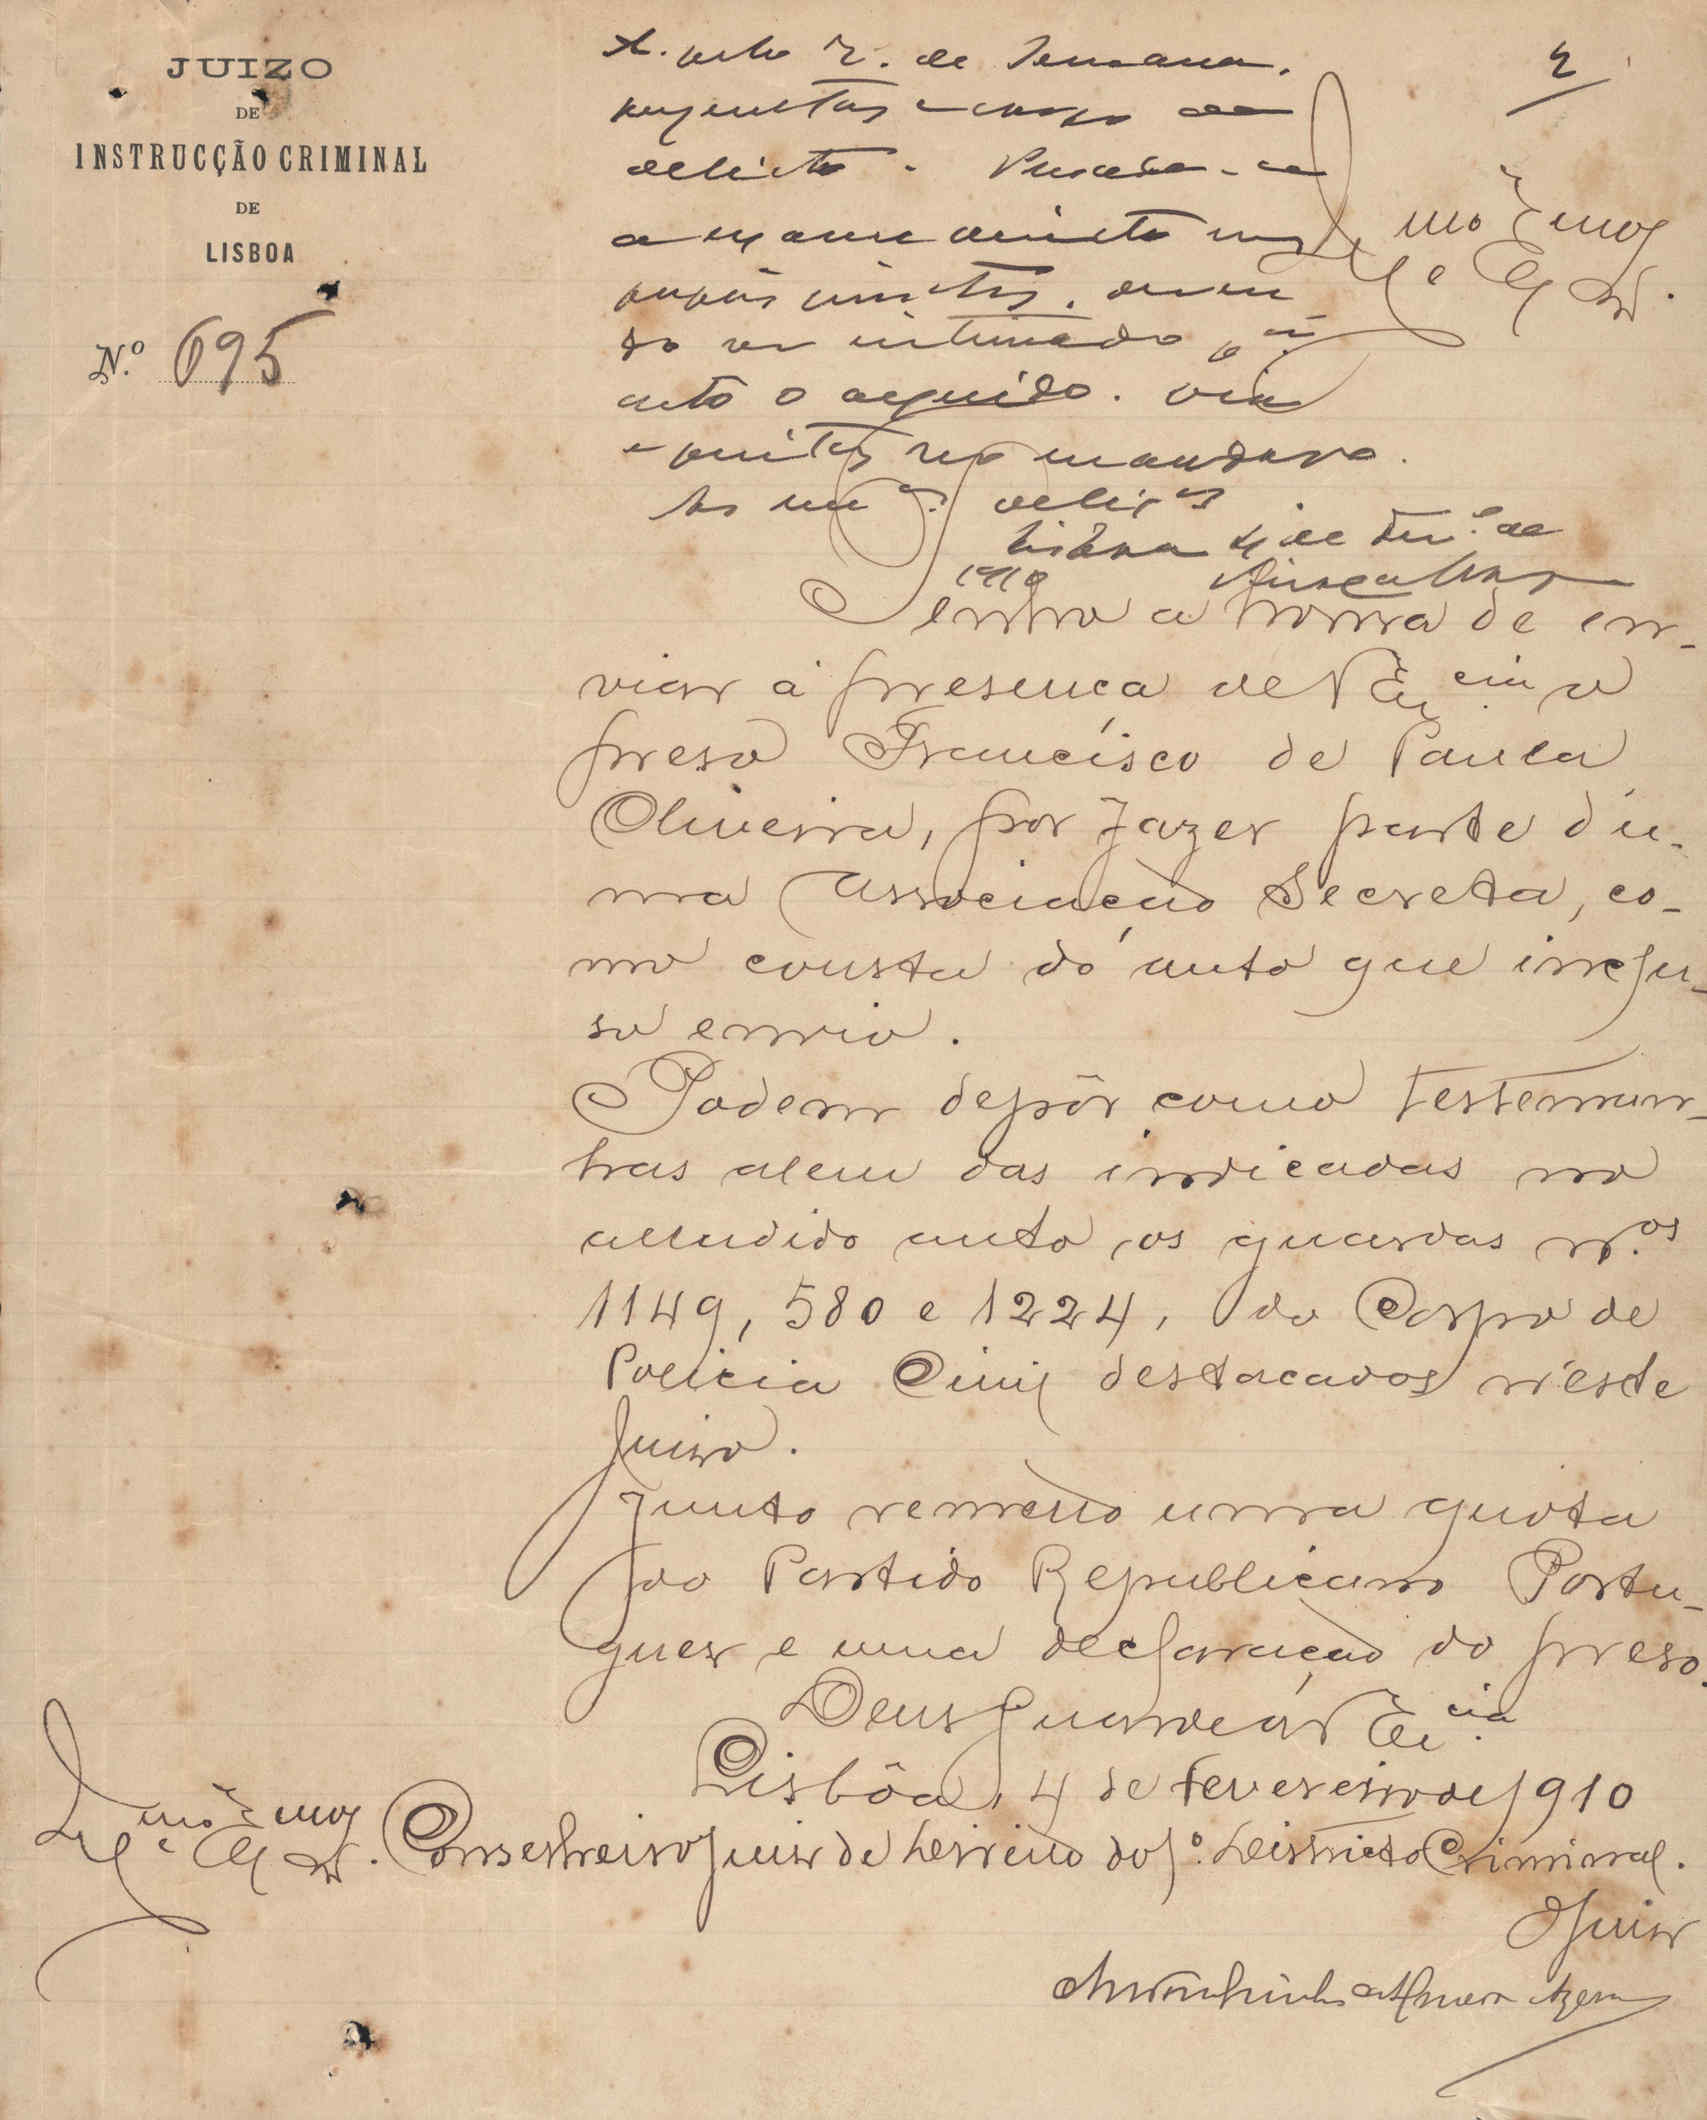 JUIZO
DE
INSTRUCÇÃO CRIMINAL
DE
LISBOA
N.º 695
2
A. pelo de Semana,
corpo de
delicto. Proceda-se
a exame directo nos
do ser intimado
acto o arguido. Dia
e no mandado.
Lisboa 4 de Fev.º de
1910
Illmo Exmo
Snr.
Tenho a honra de en-
viar á presença de V Ex.cia o
preso Francisco de Paula
Oliveira, por fazer parte d'u-
ma Associação Secreta, co-
mo consta do auto que inclu-
so envio.
Podem depôr como testemun-
has alem das indicadas no
alludido auto, os guardas n.os
1149, 580 e 1224, do Corpo de
Policia Civil destacados n'este
Juizo.
Junto remetto uma quota
do Partido Republicano Portu-
guez e uma declaração do preso.
Deus Guarde a V Ex.cia
Lisbôa, 4 de fevereiro de 1910
Illmo Exmo
Snr. Conselheiro Juiz de Direito do 1.º Districto Criminal.
O Juiz